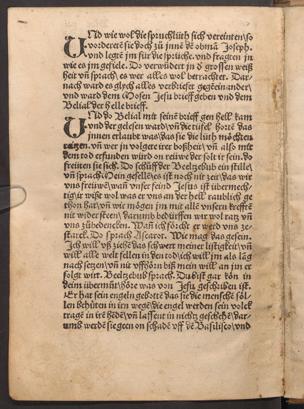 Und wie wol die spruchlüth sich vereinten/so
vorderetē sie doch zů jnnē dē obmā Joseph.
vnd legtē jm für die sprüche. vnd fragten jn
wie es jm gefiele. Do verwūdert jn d grossen weiß
heit vn̄ sprach/es wer alles wol betrachter. Dar-
nach ward es glych alles verbriefet gegeneinander/
vnd ward dem Mosen Jesu brieff geben vnd dem
Belial der helle brieff.
Und do Belial mit seinē brieff gen hell kam
vnd der gelesen ward/vn̄ die tüfel hort das
jnnen erlaubt was/das sie die lüth möchten
raitzen. vn̄ wer jn volgete irer boßheit/vn̄ also mit
dem tod erfunden würd on reüwe der solt ir sein. do
freüten sie sich. Do schlüffet Beelzebub ein stille/
vn̄ sprach. Mein gesellē/es ist noch nit zeit/das wir
vns freüwē/wan̄ vnser feind Jesus ist übermech-
tig/ir wißt wol was er vns an der hell raublich ge
thon hat/vn̄ wie mögen jm mit alle vnsern krefftē
nit widersteen/darumb bedürffen wir wol ratz vn̄
vns zübedencken. Wan̄ ich förcht er werd vns ze-
starck. Do sprach Ascarot. Wie mag das gesein.
Ich will vß ziehē das schwert meiner listigkeit/vn̄
will alle welt fellen in den tod/ich will jm als lāg
nach setzen/vn̄ nit vffhörn biß mein will an jm er
folgt wirt. Beelzebub sprach. Du bist gar kön in
deim übermüt/höre was von Jesu geschriben ist.
Er hat sein engeln gebottē das sie die menschē söl-
len behüten in iren wegē/die engel werden sein volck
tragē in irē hēdē/vn̄ lassent in nichtz geschehē/dar-
umb werdē sie geen on schadē vff dē Basilisco/vnd